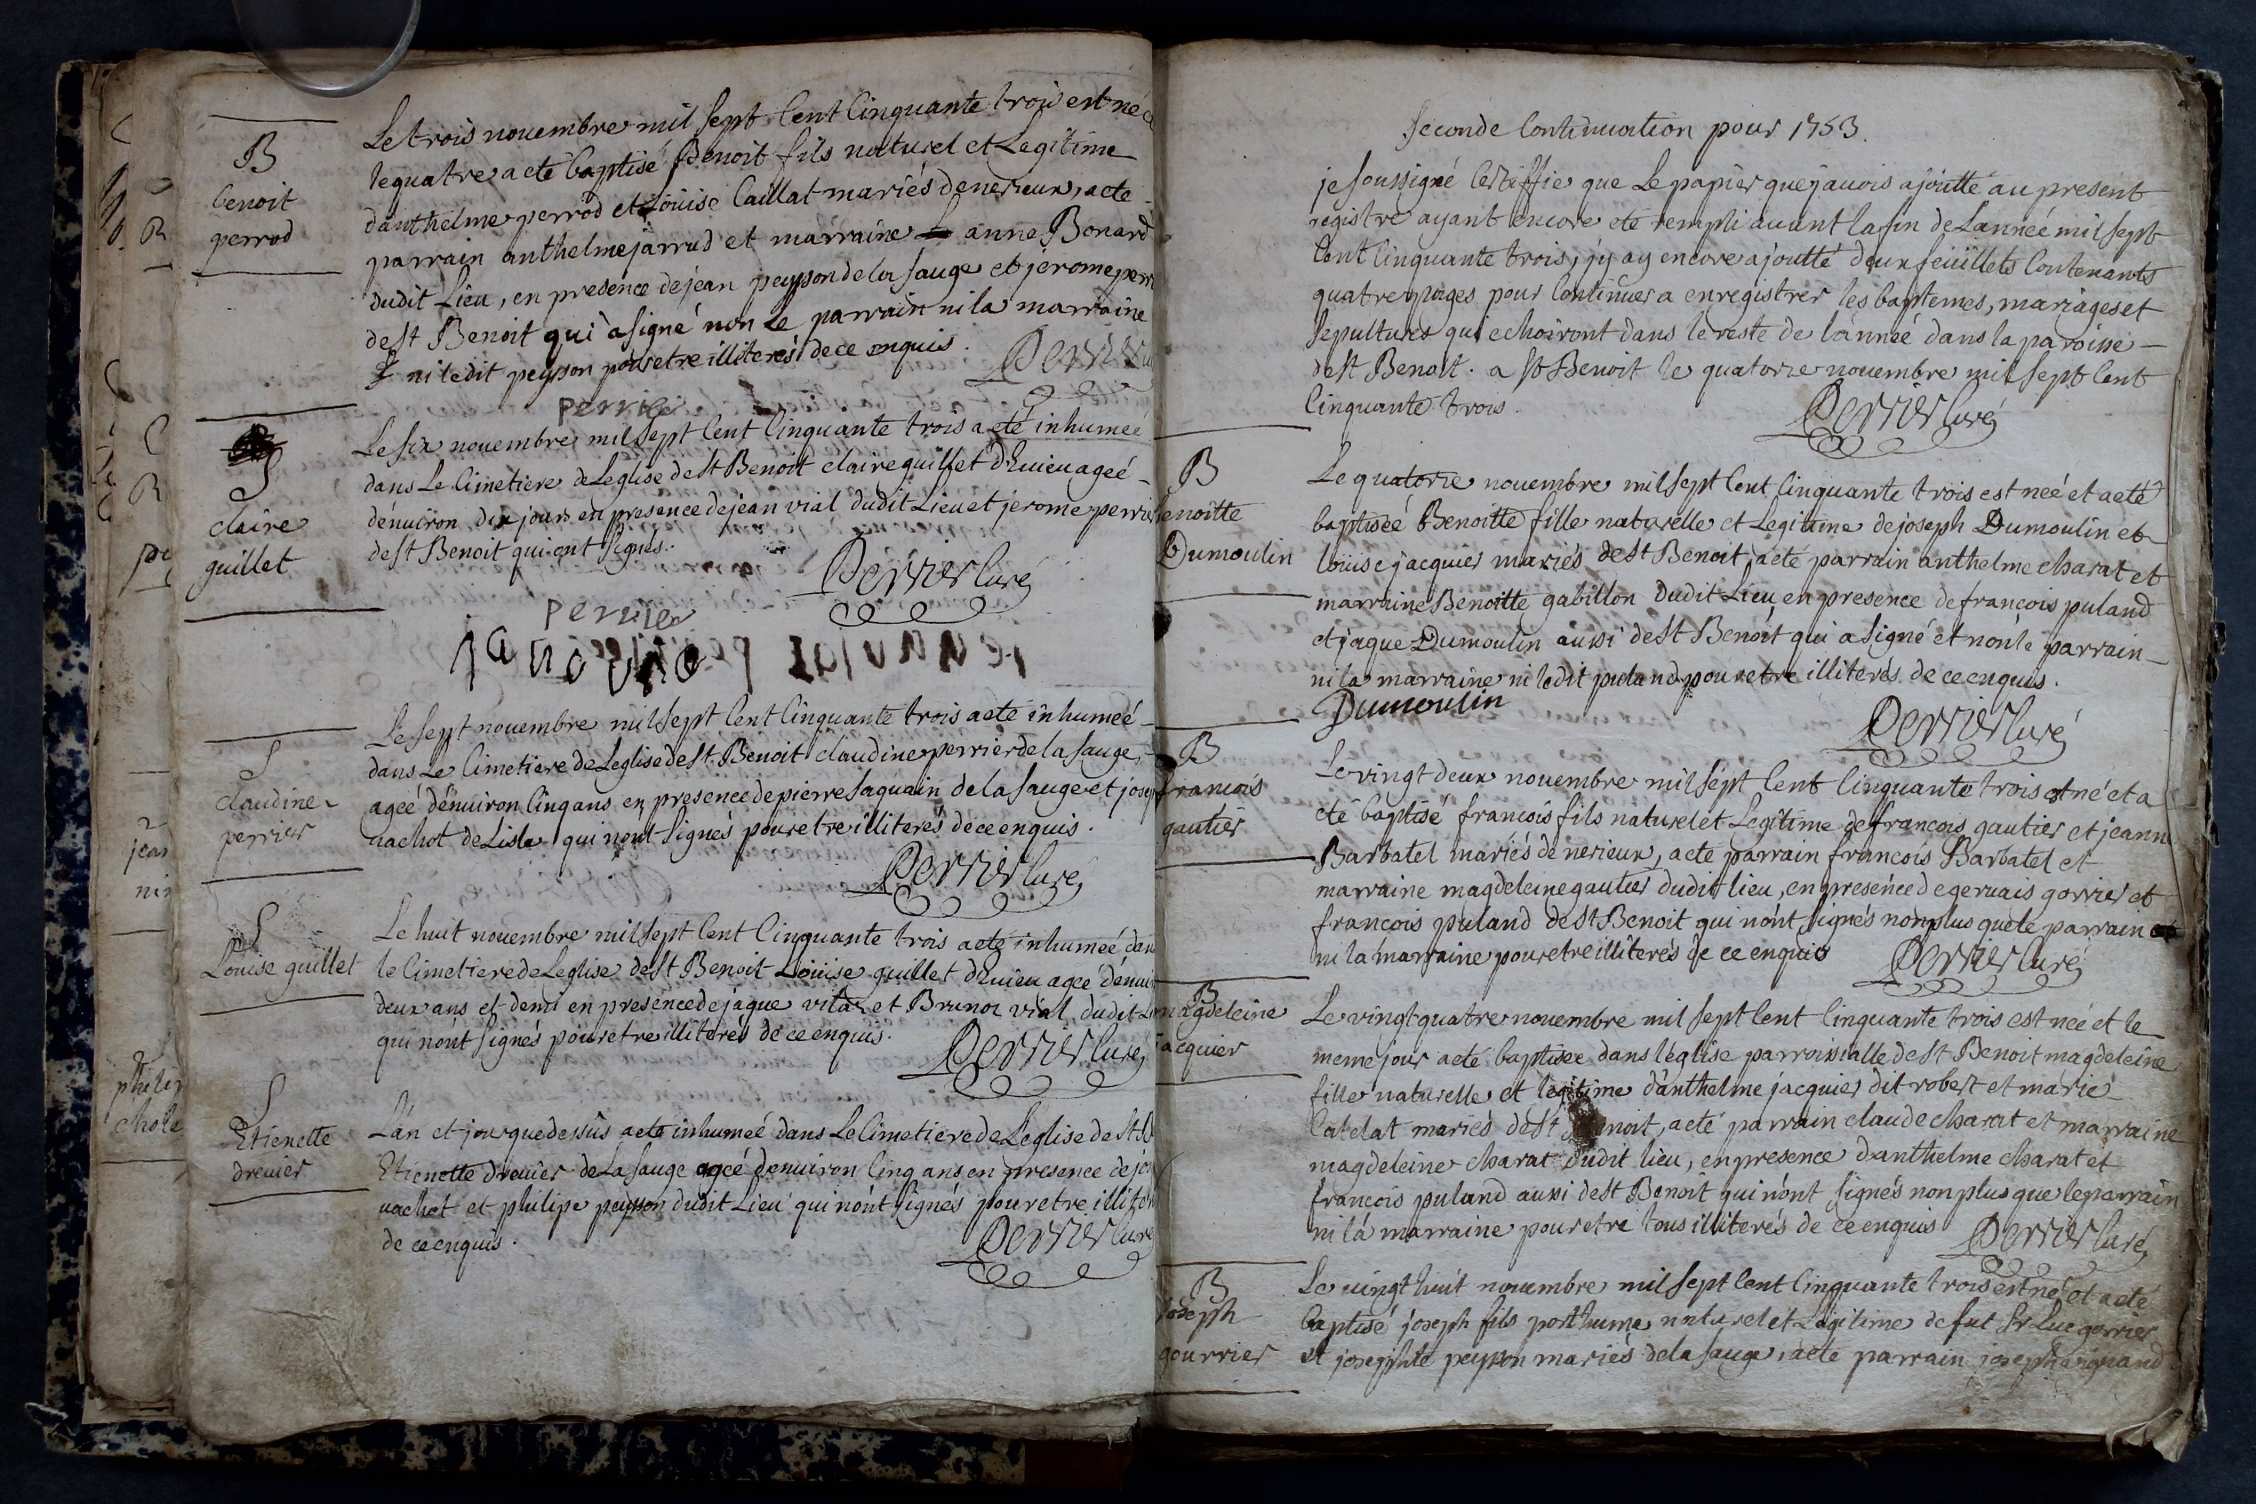 B
benoit
perrod
Le trois novembre mil sept Cent Cinquante trois est né et
le quatre a eté baptisé Benoit fils naturel et Legitime
d'anthelme perrod et Loüise Caillat mariés de nerieux, a eté
parrain anthelme jarrud et marraine anne Bonard
dudit Lieu, en presence de jean peysson de la sauge et jerome perri
de St Benoit qui a signé non Le parrain ni la marraine
ni ledit peysson pour etre illiterés de ce enquis.
Perrier
perrier
S
claire
guillet
Le six novembre mil sept Cent Cinquante trois a eté inhumeé
dans Le Cimetiere de Leglise de St Benoit claire guillet d'Evieu ageé
d'environ dix jours en presence de jean vial dudit Lieu et jerome perrier
de St Benoit qui ont signés.
Perrier Curé
perrier
S
claudine
perrier
Le sept novembre mil sept Cent Cinquante trois a eté inhumeé
dans Le Cimetiere de Leglise de St Benoit claudine perrier de la sauge,
ageé d'environ Cinq ans, en presence de pierre saquain de la sauge et josep
vachot de Lisle qui n'ont signés pour etre illiterés de ce enquis.
Perrier Curé
S
Loüise guillet
Le huit novembre mil sept Cent Cinquante trois a eté inhumeé dan
le Cimetiere de Leglise de St Benoit Loüise guillet d'Evieu ageé d'envi
deux ans et demi en presence de jaque vital et Brunoz vial dudit Li
qui n'ont signés pour etre illiterés de ce enquis.
Perrier Curé
S
Etienette
drevier
L'an et jour que dessus a eté inhumeé dans Le Cimetiere de L'eglise de St B
Etienette drevier de La sauge ageé d'environ Cinq ans en presence de jo
vachot et philipe peysson dudit Lieu qui n'ont signés pour etre illiter
de ce enquis.
Perrier Curé
Seconde Continuation pour 1753.
je soussigné Certiffie que Le papier que j'avois ajoutté au present
registre ayant encore eté rempli avant la fin de L'anneé mil sept
Cent Cinquante trois, j'y ay encore ajoutté deux feüillets Contenants
quatre pages pour Continuer a enregistrer les baptemes, mariages et
sepultures qui echoiront dans le reste de l'anneé dans la paroisse
de St Benoit. a St Benoit le quatorze novembre mil sept Cent
Cinquante trois.
Perrier Curé
B
enoitte
Dumoulin
Le quatorze novembre mil sept Cent Cinquante trois est neé et a eté
baptiseé Benoitte fille naturelle et Legitime de joseph Dumoulin et
Loüise jacquier mariés de St Benoit, a eté parrain anthelme charat et
marraine Benoitte gabillon dudit Lieu, en presence de françois puland
et jaque Dumoulin aussi de St Benoit qui a signé et non le parrain
ni la marraine ni ledit puland pour etre illiterés de ce enquis.
Dumoulin
Perrier Curé
B
francois
gautier
Le vingt deux novembre mil sept Cent Cinquante trois est né et a
eté baptisé francois fils naturel et Legitime de francois gautier et jeanne
Barbatel mariés de nerieux, a eté parrain francois Barbatel et
marraine magdeleine gautier dudit lieu, en presence de gervais gorrier et
francois puland de St Benoit qui n'ont signés non plus que le parrain
ni la marraine pour etre illiterés de ce enquis
Perrier Curé
B
magdeleine
jacquier
Le vingt quatre novembre mil sept Cent Cinquante trois est neé et le
meme jour a eté baptisee dans l'église parroissialle de St Benoit magdeleine
fille naturelle et legitime d'anthelme jacquier dit robert et marie
Catelat mariés de St Benoit, a eté parrain claude charat et marraine
magdeleine charat dudit lieu, en presence d'anthelme charat et
francois puland aussi de St Benoit qui n'ont signés non plus que le parrain
ni la marraine pour etre tous illiterés de ce enquis
Perrier Curé
B
joseph
gourrier
Le vingt huit novembre mil sept Cent Cinquante trois est né et a eté
baptisé joseph fils posthume naturel et Legitime de fut Sr Luc gorrier
et josephte peysson mariés de la sauge, a eté parrain joseph